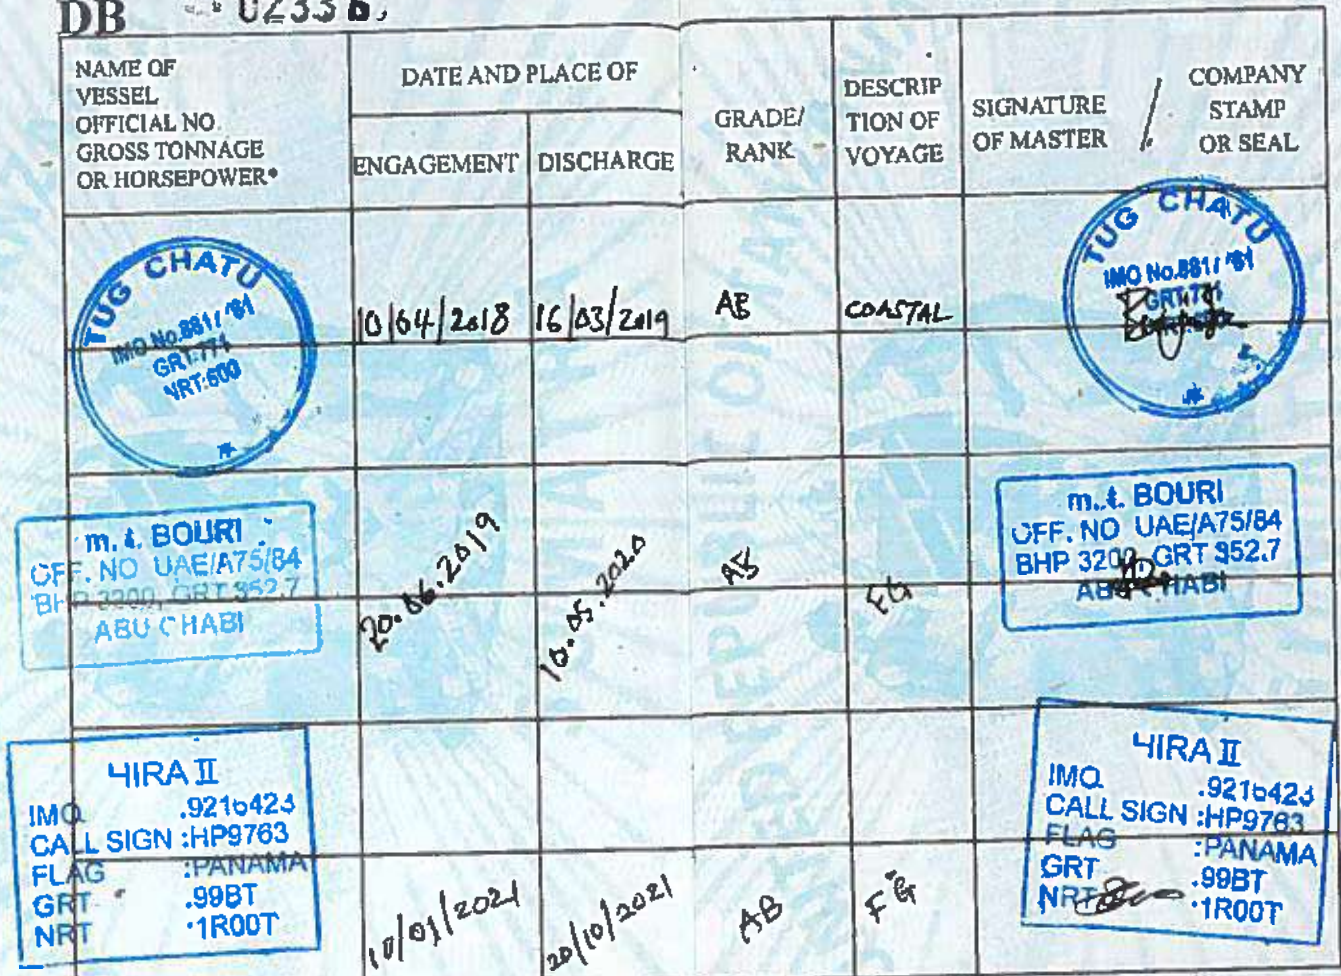 DB 0233
NAME OF
VESSEL
OFFICIAL NO.
GROSS TONNAGE
OR HORSEPOWER*
DATE AND PLACE OF
ENGAGEMENT
DISCHARGE
GRADE/
RANK
DESCRIP
TION OF
VOYAGE
SIGNATURE
OF MASTER
/
COMPANY
STAMP
OR SEAL
TUG CHATU
IMO No.
GRT:771
NRT:600
10/04/2018
16/03/2019
AB
COASTAL
TUG CHATU
IMO No.
GRT:771
m.t. BOURI
OFF. NO UAE/A75/84
BHP 3200, GRT 352.7
ABU CHABI
20.06.2019
10.05.2020
AB
FG
m.t. BOURI
OFF. NO UAE/A75/84
BHP 3200, GRT 352.7
HABI
HIRA II
IMO .9216423
CALL SIGN :HP9763
FLAG :PANAMA
GRT .99BT
NRT 1R00T
10/01/2021
20/10/2021
AB
FG
HIRA II
IMO .9216423
CALL SIGN :HP9763
FLAG :PANAMA
GRT .99BT
NRT 1R00T